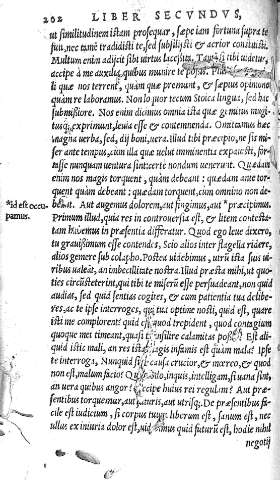 202 LIBER SECVNDVS,
ut similitudinem istam prosequar, sæpe iam fortuna supra te
fuit, nec tamē tradidisti te, sed subsilisti & acrior constitisti.
Multum enim adijcit sibi uirtus lacessita. tibi uidetur,
accipe à me auxilia, quibus munire te possis. Plu
li quæ nos terrent, quàm quæ premunt, & sæpius opinione
quàm re laboramus. Non loquor tecum Stoica lingua, sed hac
submissiore. Nos enim dicimus omnia ista quæ gemitus mugi
tusq; exprimunt, leuia esse & contemnenda. Omittamus hæc
magna uerba, sed, dij boni, uera. illud tibi præcipio, ne sis mi
ser ante tempus, cum illa quæ uelut imminentia expauisti, for
tasse nunquam uentura sint, certè nondum uenerint. Quædam
enim nos magis torquent, quàm debeant: quædam ante tor
quent quàm debeant: quædam torquent, cum omnino non de
beant. Aut augemus dolorem, aut fingimus, aut *præcipimus.
*id est occu
pamus.
Primum illud, quia res in controuersia est, & litem contesta
tam habemus in præsentia differatur. Quod ego leue dixero,
tu grauissimum esse contendes. Scio alios inter flagella ridere,
alios gemere sub colapho. Postea uidebimus, utrū ista suis ui
ribus ualeāt, an imbecillitate nostra. Illud præsta mihi, ut quo-
ties circūsteterint, qui tibi te miserū esse persuadeant, non quid
audias, sed quid sentias cogites, & cum patientia tua delibe-
res, ac te ipse interroges, qui tua optime nosti, quid est, quare
isti me complorent? quid est, quod trepident, quod contagium
quoque mei timeant, quasi transilire calamitas possit? Est ali-
quid istic mali, an res ista magis infamis est quàm mala? Ipse
te interroga, Nunquid sine causa crucior, & mœreo, & quod
non est, malum facio? Quomodo, inquis, intelligam, si uana sint,
an uera quibus angor? Accipe huius rei regulam? Aut præ-
sentibus torquemur, aut futuris, aut utrisq;. De præsentibus fa-
cile est iudicium, si corpus tuum liberum est, sanum est, nec
ullus ex iniuria dolor est, uidebimus quid futurū est, hodie nihil
negotij